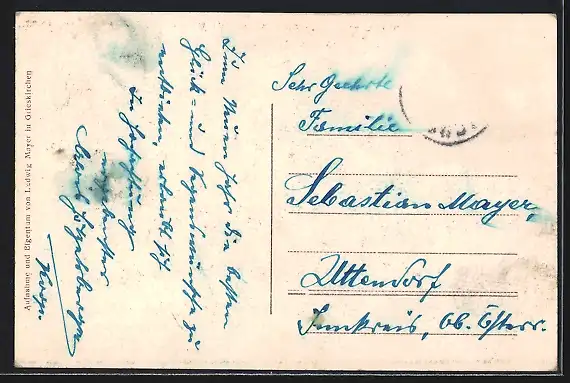 Aufnahme und Eigentum von Ludwig Mayer in Grieskirchen
Zum Neuen Jahr die besten
Glück- und Segenswünsche zu
entbieten, erlaubt sich
In Hochachtung
Sehr Geehrte
Familie
Sebastian Mayer,
Uttendorf
Innkreis, Ob. Österr.